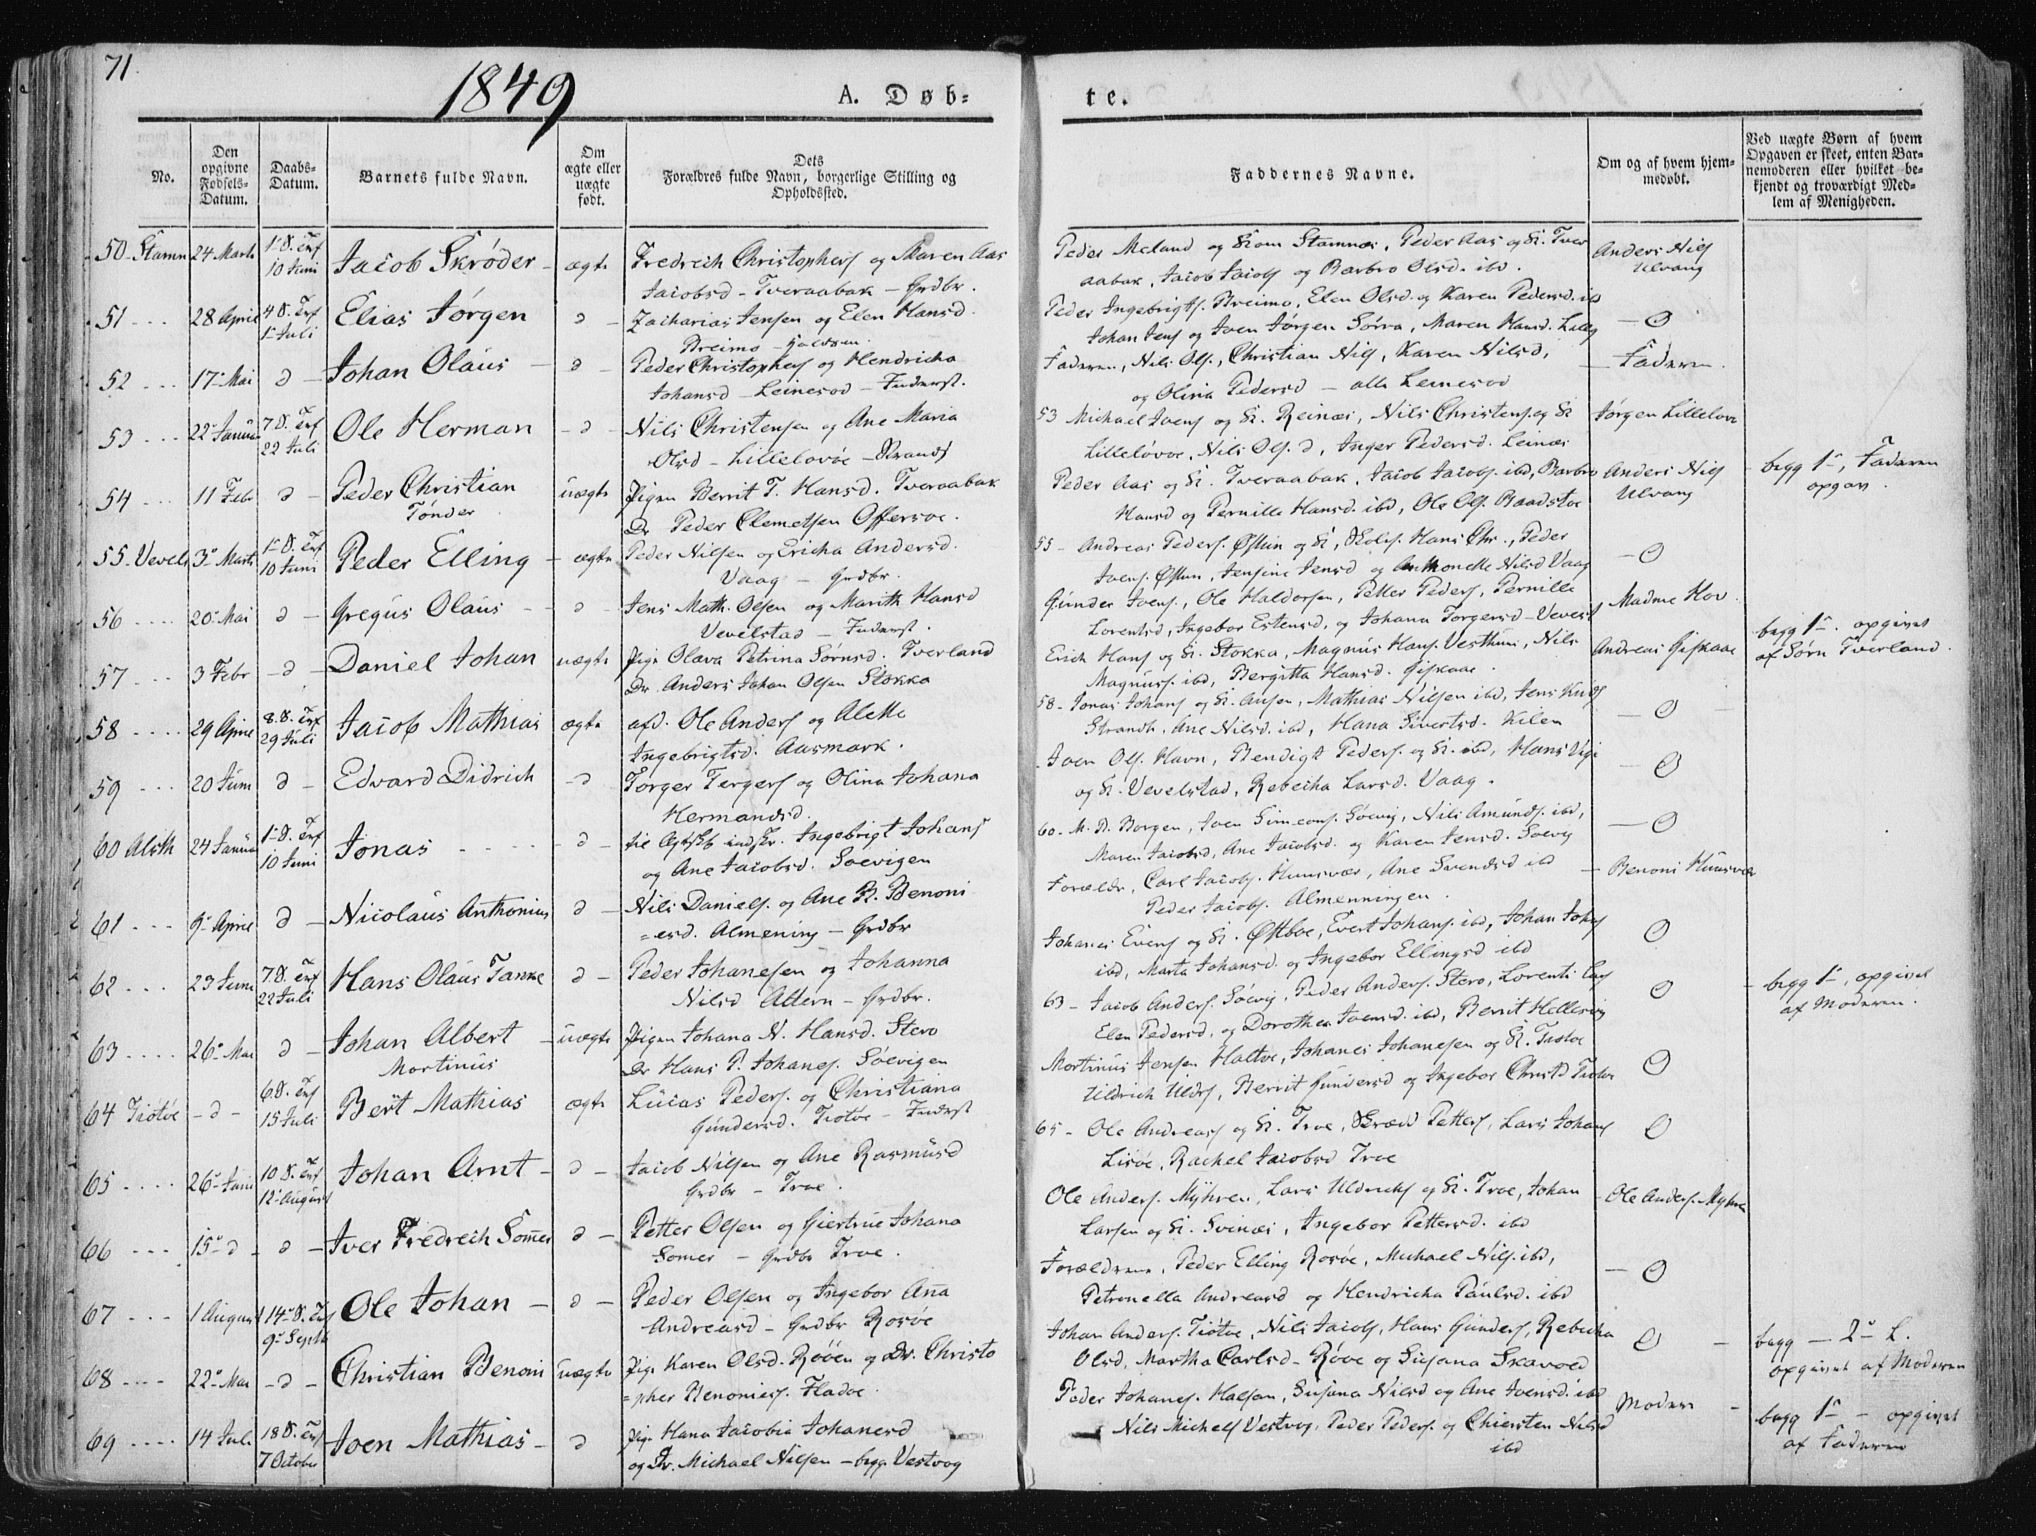 71
1849
A. Døb-
te.
No.
Den opgivne Fødsels-Datum.
Daabs-Datum.
Barnets fulde Navn.
Om ægte eller uægte født.
Dets Forældres fulde Navn, borgerlige Stilling og Opholdssted.
Faddernes Navne.
Om og af hvem hjem-medøbt.
Ved uægte Børn af hvem Opgaven er skeet, enten Bar-nemoderen eller hvilket be-kjendt og troværdigt Med-lem af Menigheden.
50 Stamn 24 Marts 1 S. Trf 10 Juni Jacob Skrøder ægte Fredrich Christophers og Maren Aas
Jacobsd - Tveraabak - Grdbr.
Peder Meland og Stamnes, Peder Aas og K. Tver
aabak, Jacob Jacobs og Barbro Olsd. ibd.
Anders Nils Ulvang
51 28 April 4 S. Trf 1 Juli Elias Jørgen d Zacharias Jensen og Elen Hansd.
Breimo
Peder Ingebrigts. Breimo, Elen Olsd. og Karen Pedersd. ib
Johan Jens og Joen Jørgen Sørra, Maren Hansd.
O
52 17 Mai d Johan Olaus d Peder Christophers og Hendricha
Johansd - Leinesod - Inderst.
Faderen, Nils Ols., Christian Nils, Karen Nilsd,
og Olina Pedersd - alle Leinesod
Faderen.
53 22 Januar 7 S. Trf 22 Juli Ole Herman d Nils Christensen og Ane Maria
Olsd - Lilleløvøe - Strands
53 Michael Ivers og K. Reinæs, Nils Christens. og K
Lilleløvøe, Nils Ols. d, Inger Pedersd. Leinæs
Jørgen Lilleløve
54 11 Febr d Peder Christian Tønder uægte Pigen Berrit T. Hansd. Tveraabak
Dr Peder Clemetsen Offersøe.
Peder Aas og K. Tveraabak, Jacob Jacobs. ibd, Barbro
Hansd og Pernille Hansd. ibd, Ole Ols. Baadstoe
Anders Nils Ulvang
begg 1, Faderen opgav.
55 Vevels 3 Marts 1 S. Trf 10 Juni Peder Elling ægte Peder Nilsen og Ericha Andersd.
Vaag - Grdbr.
55 - Andreas Peders. Østun og K, Hans Chr., Peder
Joens. Østun, Jensine Jensd og Anthonette Nilsd Vaag
O
56 20 Mai d Gregus Olaus d Jens Math. Olsen og Marith Hansd
Vevelstad - Inderst.
Gunder Ivers., Ole Haldorsen, Petter Peders, Pernille
Lorentsd, Ingebor Estensd, og Johana Torgersd - Vevest
Madme Hov
57 3 Febr d Daniel Johan uægte Pige Olava Petrina Sørnsd. Tverland
Dr. Anders Johan Olsen Stokka
Erich Hans og K. Stokka, Magnus Hans. Vesthus, Nils
Magnus. ibd, Bergitta Hansd. Giskaae
Andreas Giskaae
begg 1. opgivet af Sørn Tverland.
58 29 April 8 S. Trf 29 Juli Jacob Mathias ægte afd. Ole Anders og Alette
Ingebrigtsd. Aasmark.
58 - Jonas Johans og K. Ausen, Mathias Nilsen ibd, Jens
Strandt, Ane Nilsd. ibd, Hana Sivertsd. Kilen
O
59 20 Juni d Edvard Didrich d Torger Tergers og Olina Johana
Hermansd.
Joen Ols. Havn, Bendigt Peders. og K. ibd, Hans
og K. Vevelstad, Rebecha Larsd. Vaag.
O
60 Alsth 24 Januar 1 S. Trf 10 Juni Jonas d Ingebrigt Johans
og Ane Jacobsd. Søevigen
60 - M. B. Borgen, Joen Simeons. Søevig, Nils Amunds. ibd,
Maren Jacobsd, Ane Jacobsd. og Karen Jensd. Søevig
O
61 9 April d Nicolaus Anthonius d Nils Daniels. og Ane K. Benoni
=esd. Almening - Grdbr
Forældr, Carl Jacobs. Huusvær, Ane Svendsd ibd
Peder Jacobs. Almenningen.
Benoni Huusvær
62 23 Juni 7 S. Trf 22 Juli Hans Olaus Tanke d Peder Johanesen og Johanna
Nilsd Altern - Grdbr.
Johanes Evens og K. Østboe, Evert Johans. ibd, Johan Johs
ibd, Marta Johansd. og Ingebor Ellingsd ibd
O
63 26 Mai d Johan Albert Mortinus uægte Pigen Johana N. Hansd. Stero
Dr Hans P. Johanes. Søevigen
63 - Jacob Anders. Søevig, Peder Anders. Stero, Lorents
Elen Pedersd, og Dorothea Joensd. ibd, Berrit Hellesvig
O
begg 1, opgivet af Moderen.
64 Tiøtøe d 6 S. Trf 15 Juli Bert Mathias ægte Lucas Peders. og Christiana
Gundersd. Tiøtøe - Inderst
Mortinus Jensen Haltøe, Johanes Johanesen og K. Tiøtøe
Uldrich Uldrs, Berrit Gundersd og Ingebor Christd Tiøtøe
O
65 26 Juni 10 S. Trf 12 August Johan Arnt d Jacob Nilsen og Ane Rasmusd
Grdbr - Troe.
65 - Ole Andreas og K. Troe, Petters, Lars Johans
Lisøe, Rachel Jacobsd Troe
O
66 15 d d Iver Fredrech Sømer d Petter Olsen og Giertrue Johana
Somer - Grdbr Troe.
Ole Anders. Myhren, Lars Uldrichs og K. Troe, Johan
Larsen og K. Svinæs, Ingebor Pettersd. ibd
Ole Anders. Myhre
67 1 August 14 S. Trf 9 Septb Ole Johan d Peder Olsen og Ingebor Ana
Andreasd - Grdbr Rosøe
Forældrene, Peder Elling Rosøe, Michael Nils. ibd,
Petronella Andreasd og Hendricha Paulsd. ibd
O
68 22 Mai d Christian Benoni uægte Pige Karen Olsd. Røöen og Dr. Christo
=pher Benonies. Fladøe.
Johan Anders. Tiøtøe, Nils Jacobs, Hans Gunders, Rebecha
Olsd, Martha Carlsd - Røöe og Susana Skavoed
O
begg - 2 L. opgivet af Moderen
69 14 Juli 18 S. Trf 7 October Joen Mathias d Pige Hana Jacobia Johanesd
og Dr. Michael Nilsen - begge Vestvog
Peder Johanes. Halsan, Susana Nilsd og Ane Joensd. ibd
Nils Michels Vestvog, Peder Peders. og Chiersten Nilsd
ibd
Moderen
begg 1 - opgivet af Faderen